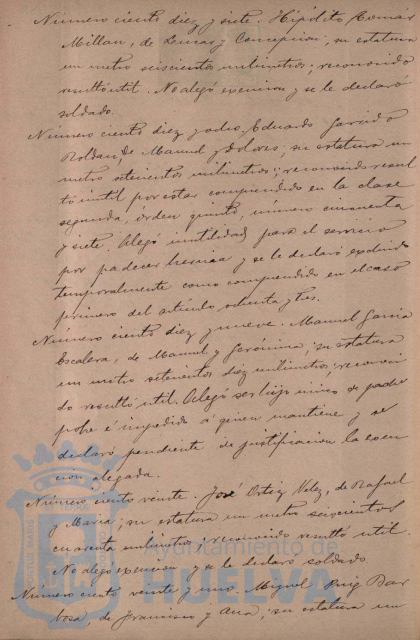 Número ciento diez y siete. Hipólito Gomar
Millan, de Lucas y Concepcion; su estatura
un metro seiscientos milímetros; reconocido
resultó útil. No alegó exencion y se le declaró
soldado.
Número ciento diez y ocho, Eduardo Garrido
Roldan, de Manuel y Dolores; su estatura un
metro setecientos milímetros; reconocido resul
tó inútil por estar comprendido en la clase
segunda, órden quinto, número cincuenta
y siete. Alegó inutilidad para el servicio
por padecer hernia y se le declaró excluido
temporalmente como comprendido en el caso
primero del artículo ochenta y tres.
Número ciento diez y nueve. Manuel García
Escalera, de Manuel y Gerónima; su estatura
un metro setecientos diez milímetros; reconoci
do resultó útil. Alegó ser hijo único de padre
pobre é impedido á quien mantiene y se
declaró pendiente de justificacion la exen
cion alegada.
Número ciento veinte. José Ortiz Velez, de Rafael
y María; su estatura un metro seiscientos
cuarenta milímetros; reconocido resultó útil.
No alegó exencion y se le declaró soldado
Número ciento veinte y uno. Miguel Puig Bar
bosa, de Francisco y Ana; su estatura un
Ayuntamiento de
HUELVA